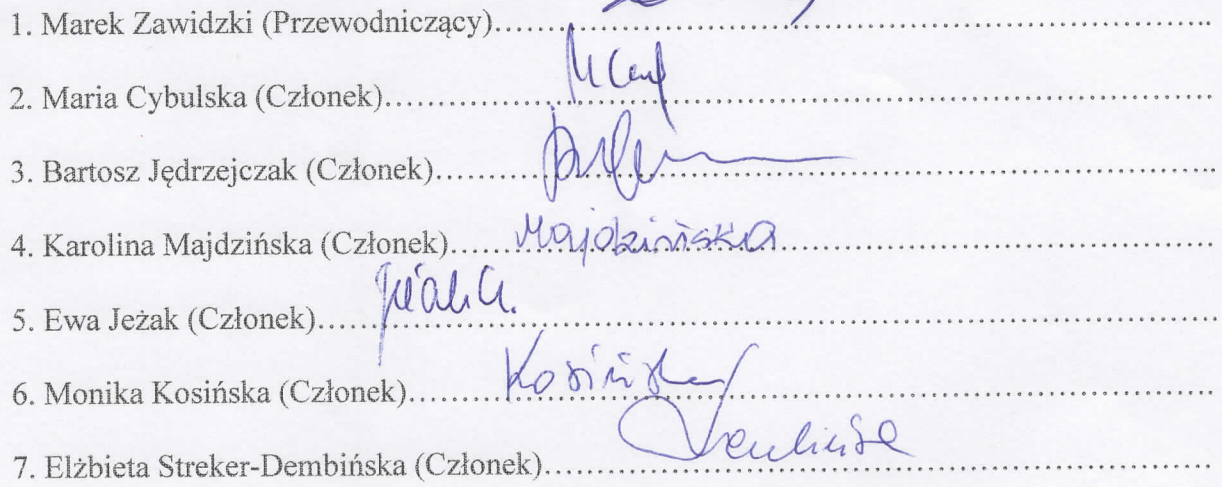 1. Marek Zawidzki (Przewodniczący)
2. Maria Cybulska (Członek)
3. Bartosz Jędrzejczak (Członek)
4. Karolina Majdzińska (Członek) Majdzińska
5. Ewa Jeżak (Członek)
6. Monika Kosińska (Członek) Kosińska
7. Elżbieta Streker-Dembińska (Członek)